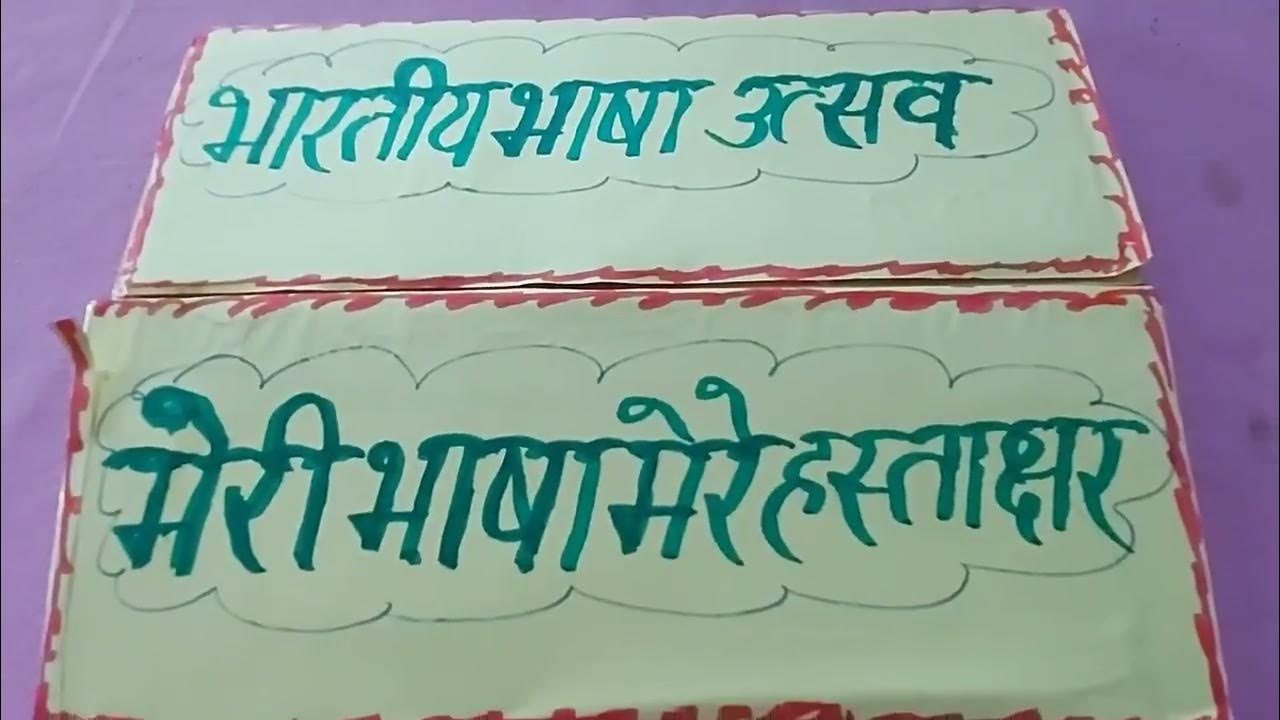 भारतीय भाषा उत्सव
मेरी भाषा मेरे हस्ताक्षर